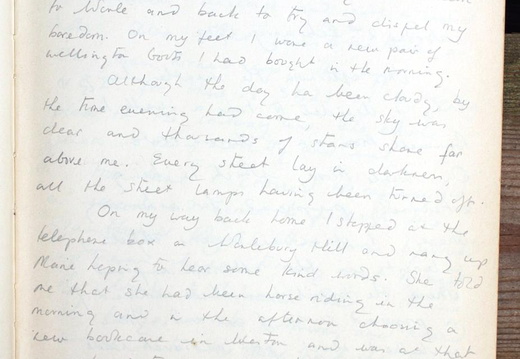 to Worle and back to try and dispel my
boredom. On my feet I wore a new pair of
wellington boots I had bought in the morning.
Although the day ha been cloudy, by
the time evening had come, the sky was
clear and thousands of stars shone far
above me. Every street lay in darkness,
all the street lamps having been turned off.
On my way back home I stopped at the
telephone box on Hill and rang up
Marie hoping to hear some kind words. She told
me that she had been horse riding in the
morning and in the afternoon choosing a
new bookcase in Weston and was at that